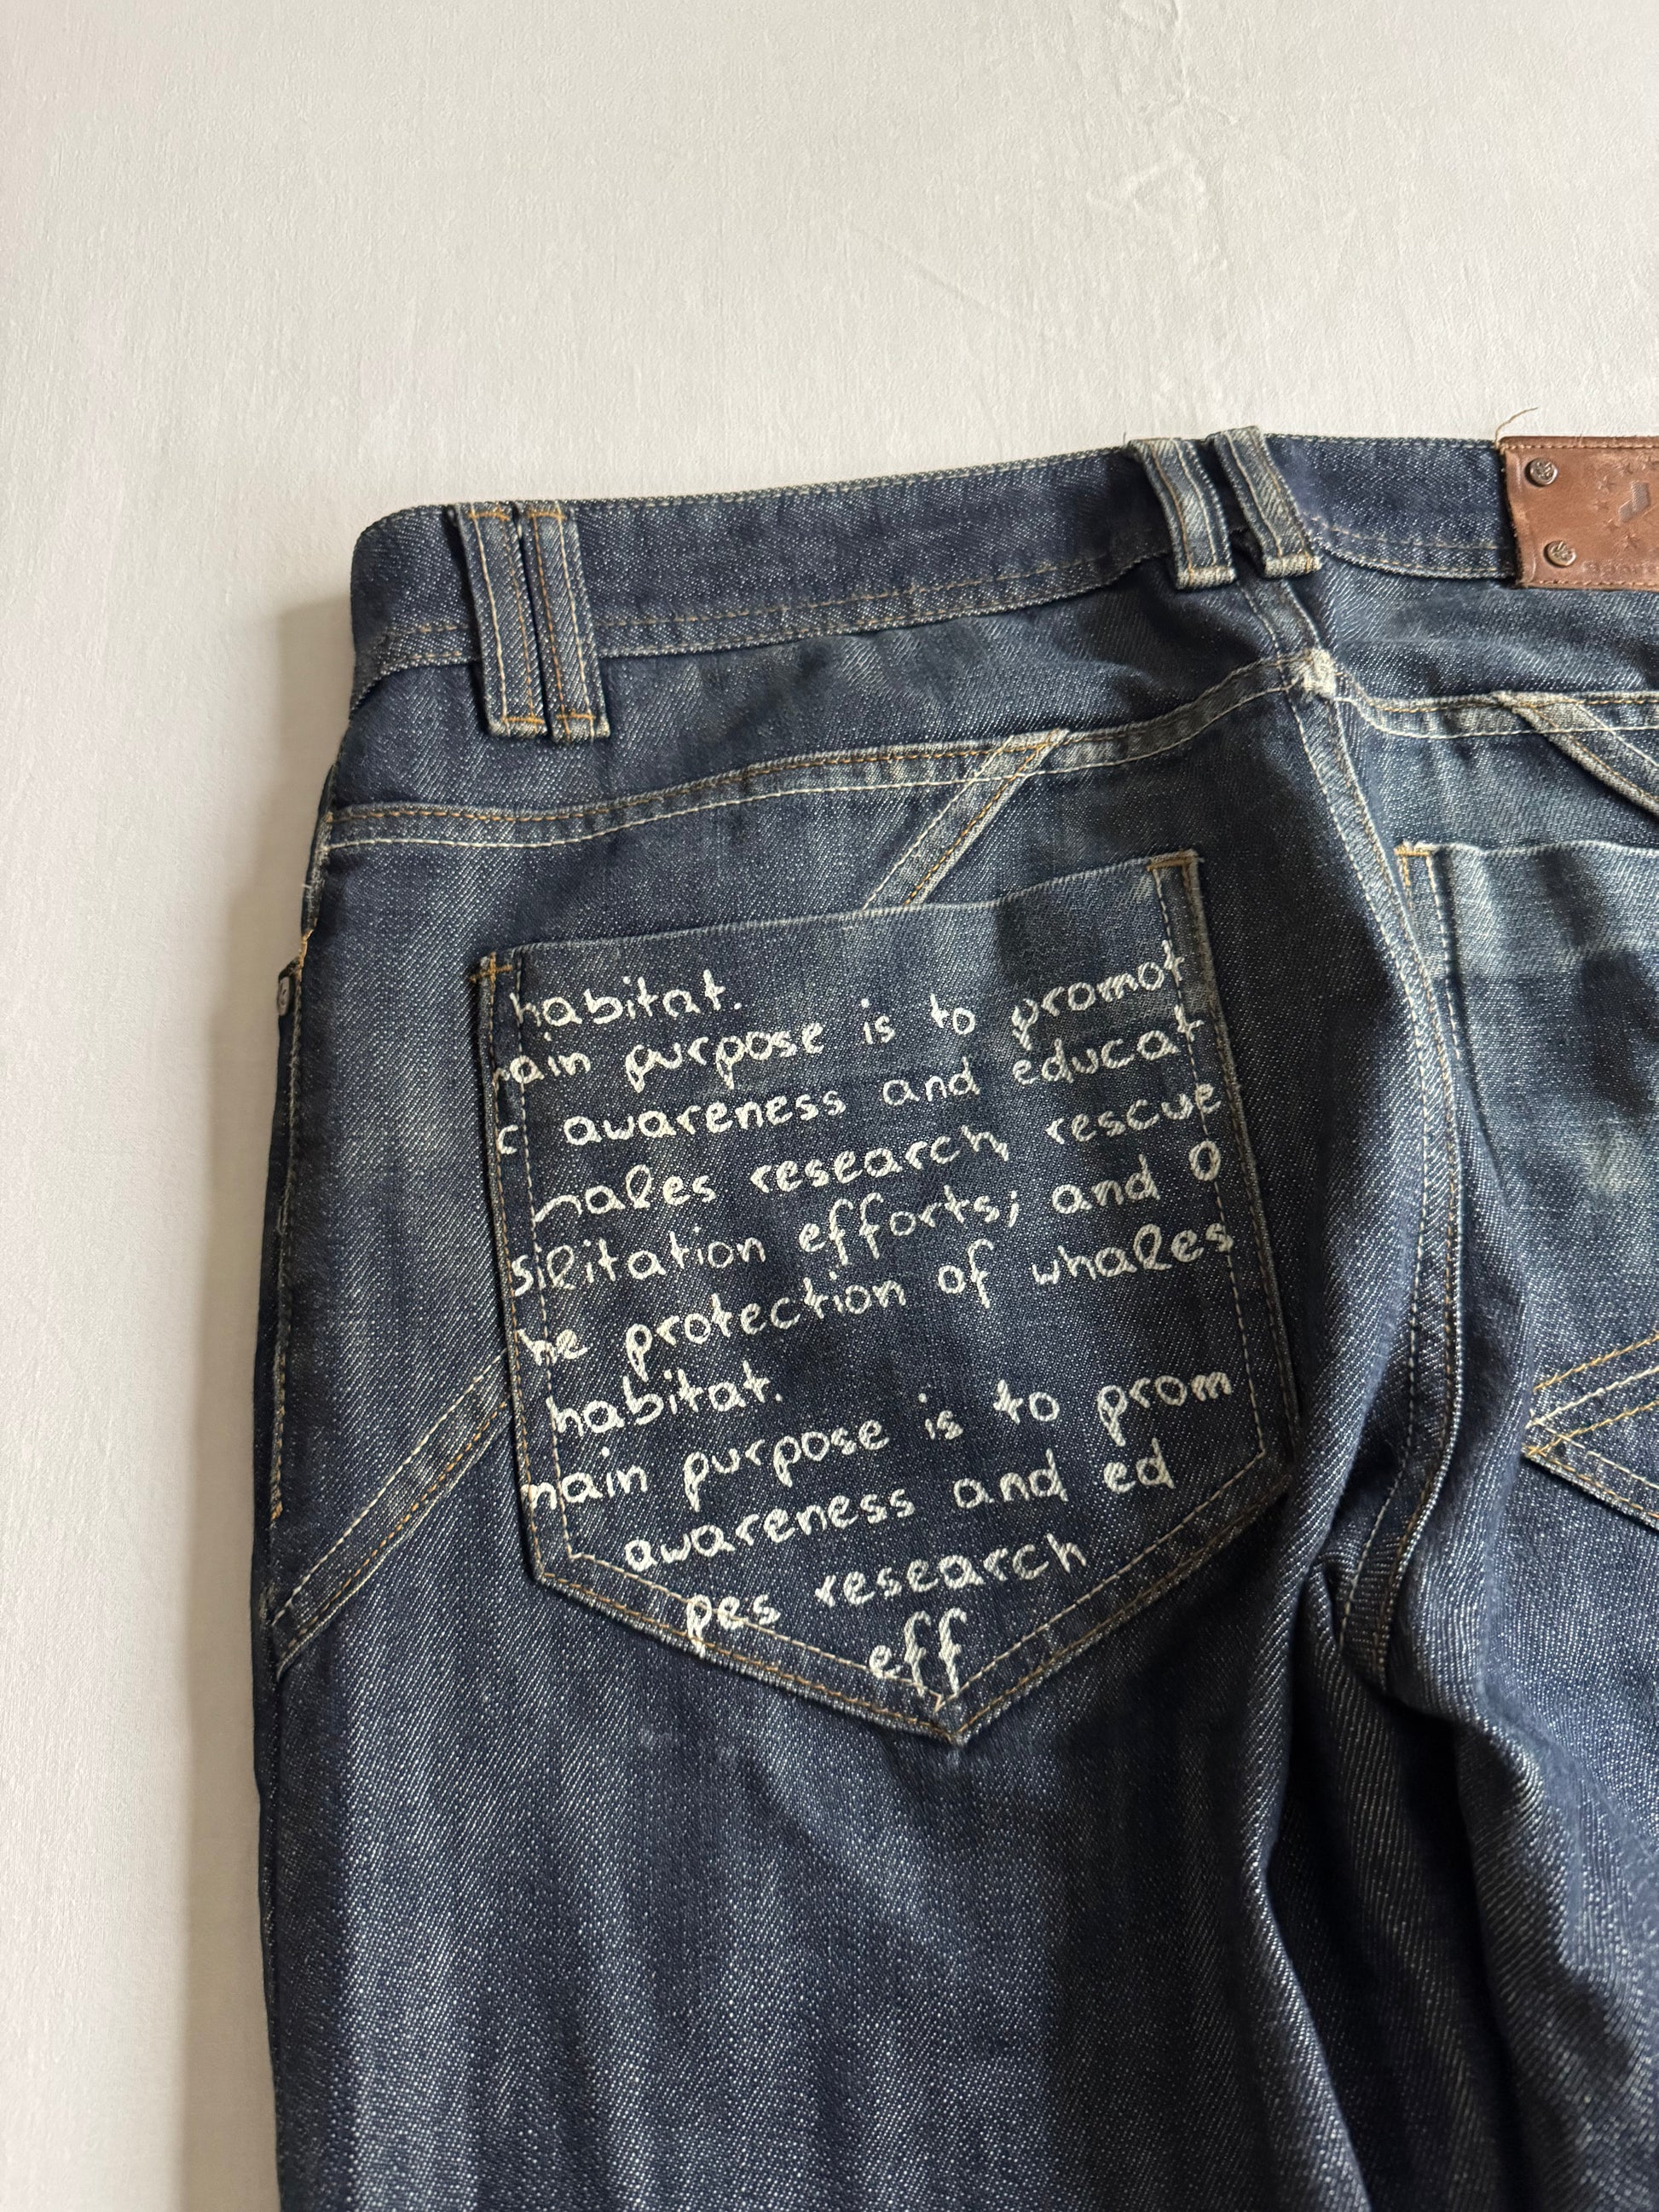 habitat.
ain purpose is to promot
c awareness and educat
nales research rescue
silitation efforts; and O
he protection of whales
habitat.
main purpose is to prom
awareness and ed
pes research
eff